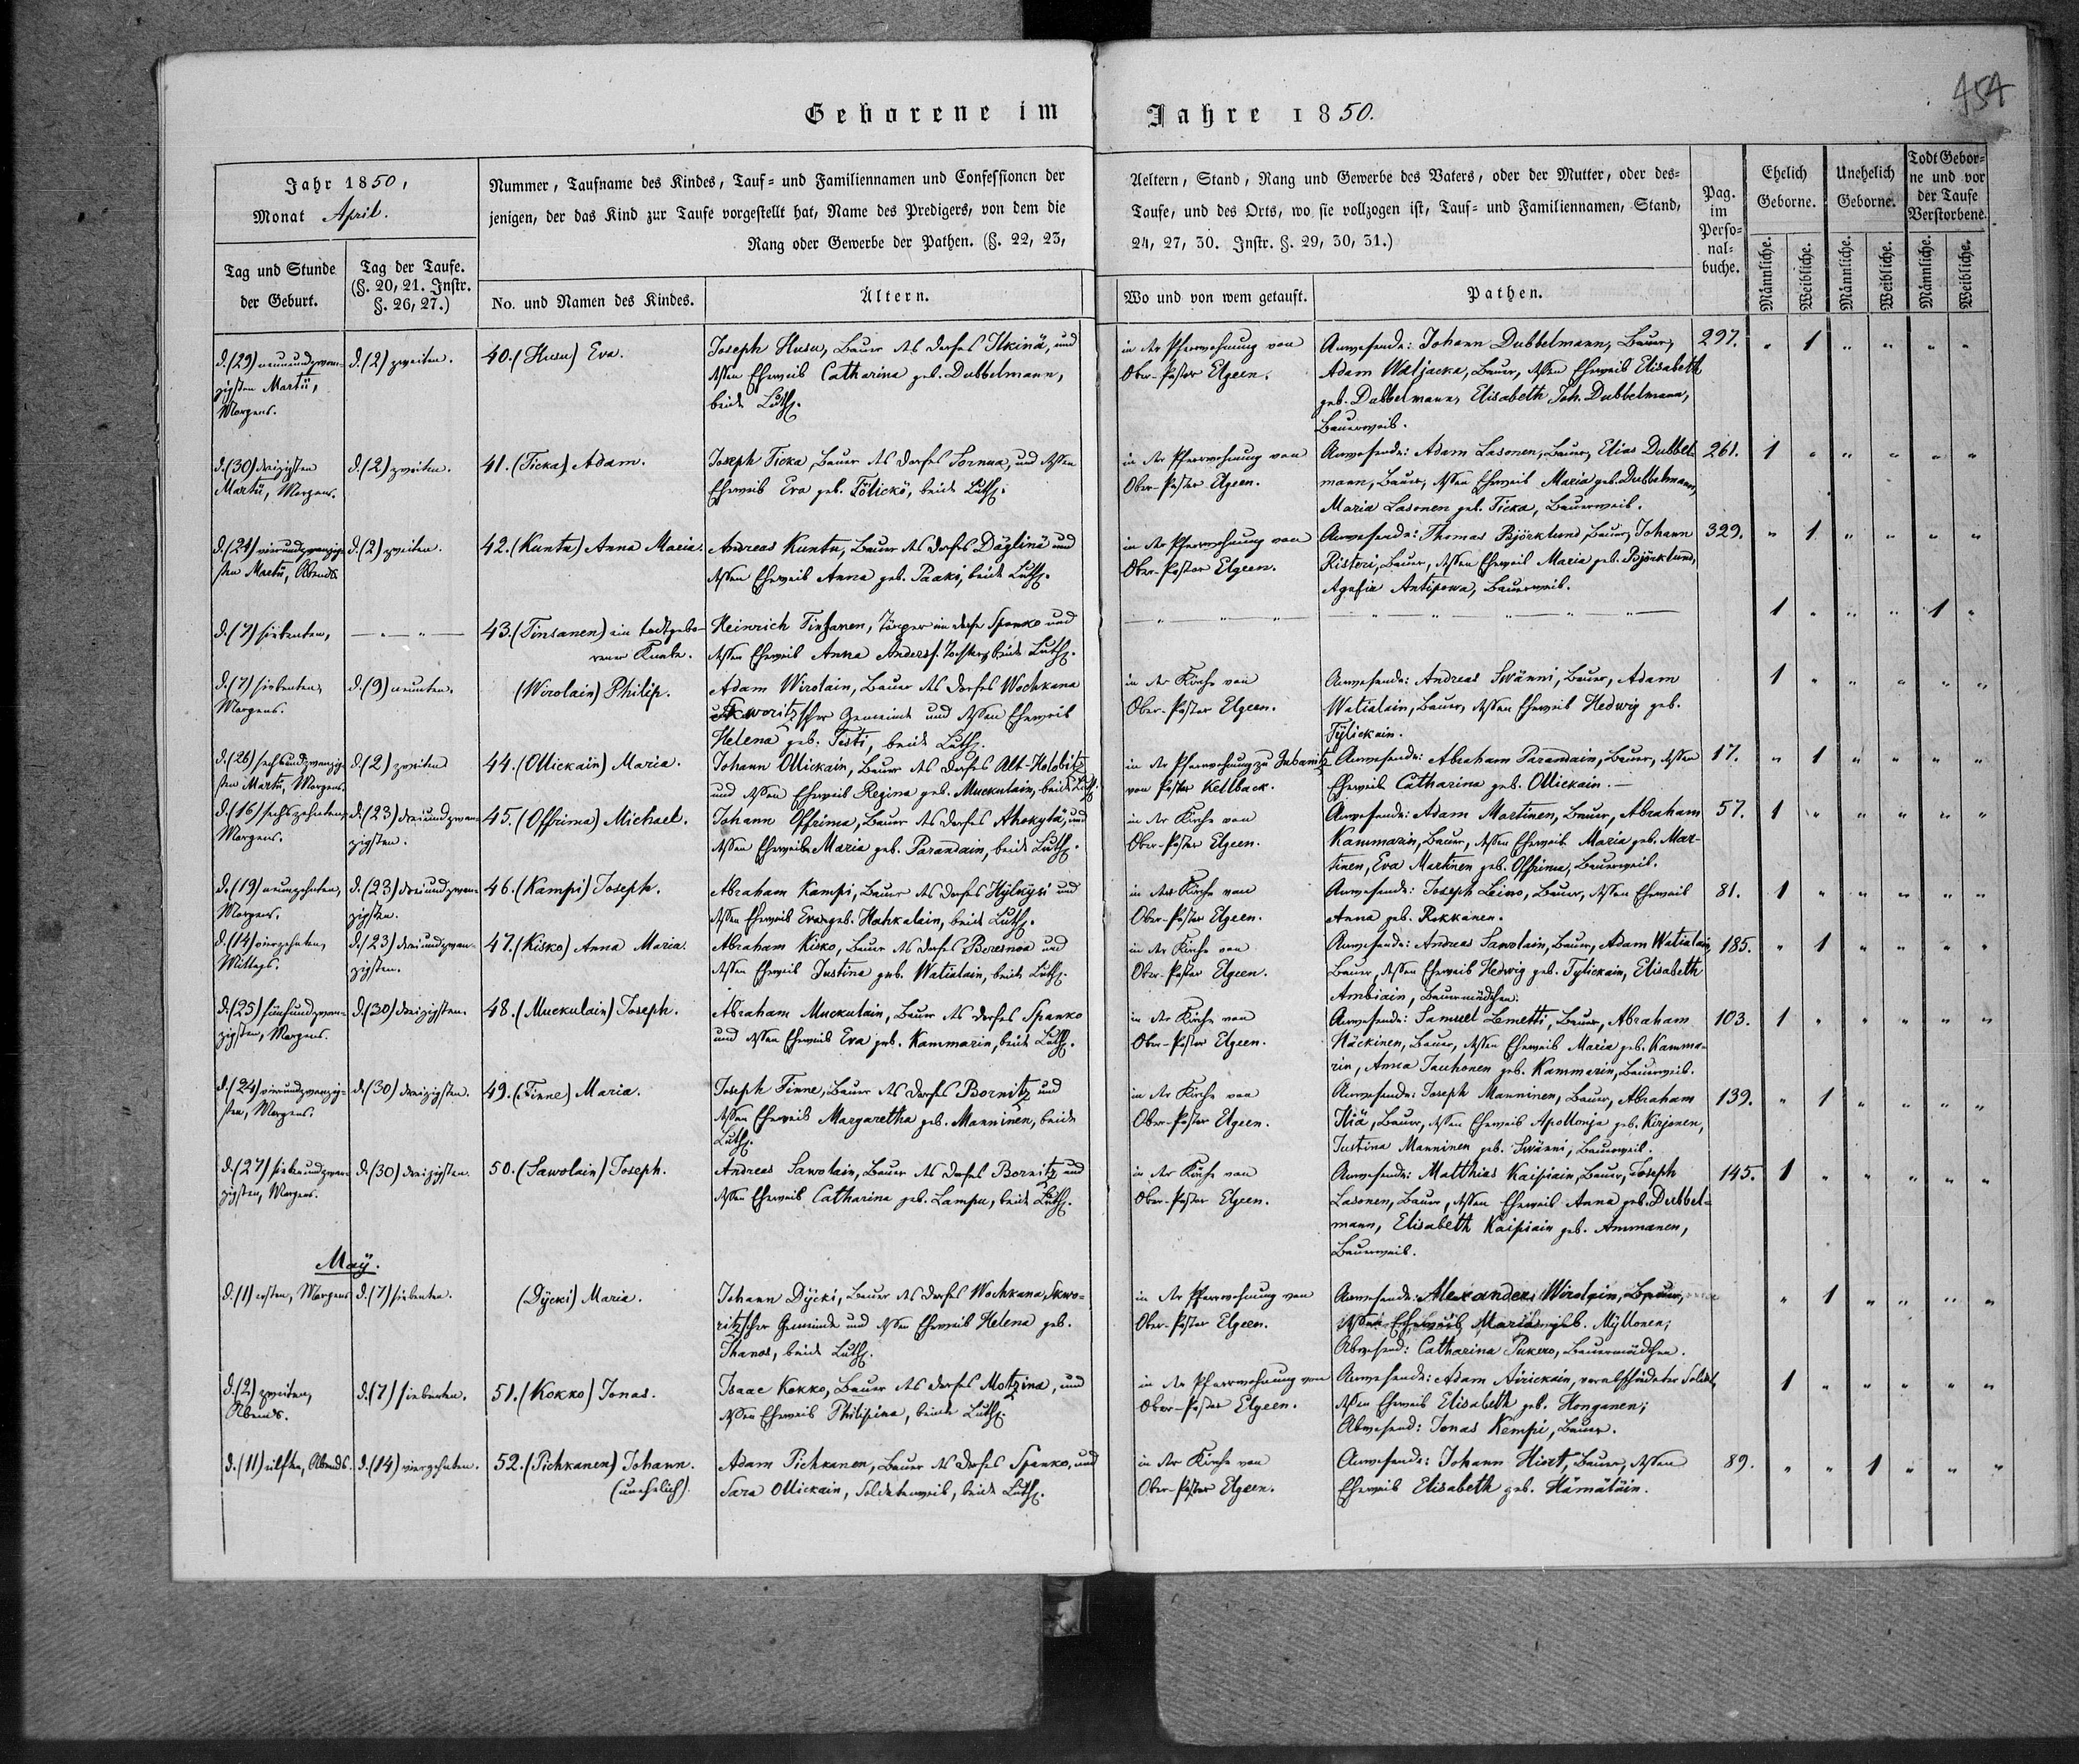 454
Geborene im Jahre 1850.
Jahr 1850,
Monat April.
Nummer, Taufname des Kindes, Tauf- und Familiennamen und Confessionen der
jenigen, der das Kind zur Taufe vorgestellt hat, Name des Predigers, von dem die
Rang oder Gewerbe der Pathen. (§. 22, 23,
Aeltern, Stand, Rang und Gewerbe des Vaters, oder der Mutter, oder des-
Taufe, und des Orts, wo sie vollzogen ist, Tauf- und Familiennamen, Stand,
24, 27, 30. Instr. §. 29, 30, 31.)
Pag.
im
Perso-
nal-
buche.
Ehelich
Geborne.
Unehelich
Geborne.
Todt Gebor-
ne und vor
der Taufe
Verstorbene.
Tag und Stunde
der Geburt.
Tag der Taufe.
(§. 20, 21. Instr.
§. 26, 27.)
No. und Namen des Kindes.
Ältern.
Wo und von wem getauft.
Pathen.
Männliche.
Weibliche.
Männliche.
Weibliche.
Männliche.
Weibliche.
d. (29) neunundzwan-
zigsten Martii,
Morgens.
d. (2) zweiten.
40. (Husu) Eva.
Joseph Husu, Bauer des Dorfes Ilkinä, und
dessen Eheweib Catharina geb. Dubbelmann,
beide Luth.
in der Pfarrwohnung von
Ober-Pastor Elgeen.
Anwesende: Johann Dubbelmann, Bauer,
Adam Waljacka, Bauer, dessen Eheweib Elisabeth
geb. Dubbelmann, Elisabeth Joh. Dubbelmann,
Bauerweib.
297. " 1 " " " "
d. (30) dreizigsten
Martii, Morgens.
d. (2) zweiten.
41. (Ticka) Adam.
Joseph Ticka, Bauer des Dorfes Sornua, und dessen
Eheweib Eva geb. Tölickö, beide Luth.
in der Pfarrwohnung von
Ober-Pastor Elgeen.
Anwesende: Adam Lasonen, Bauer, Elias Dubbel-
mann, Bauer, dessen Eheweib Maria geb. Dubbelmann,
Maria Lasonen geb. Ticka, Bauerweib.
261. 1 " " " " "
d. (24) vierundzwanzig-
sten Martii, Abends
d. (2) zweiten.
42. (Kuntu) Anna Maria.
Andreas Kuntu, Bauer des Dorfes Däglinä und
dessen Eheweib Anna geb. Paaki, beide Luth.
in der Pfarrwohnung von
Ober-Pastor Elgeen.
Anwesende: Thomas Björklund, Bauer, Johann
Risteri, Bauer, dessen Eheweib Maria geb. Björklund,
Agafia Antipowa, Bauerweib.
329. " 1 " " " "
d. (7) siebenten,
43. (Tinsanen) ein todtgebo-
rener Knabe.
Heinrich Tinsanen, im Dorfe Spanko und
dessen Eheweib Anna Anders. Tochter, beide Luth.
1 " " " 1 "
d. (7) siebenten,
Morgens.
d. (9) neunten.
(Wirolain) Philip.
Adam Wirolain, Bauer des Dorfes Wochkana
Skworitzscher Gemeinde und dessen Eheweib
Helena geb. Testi, beide Luth.
in der Kirche von
Ober-Pastor Elgeen.
Anwesende: Andreas Swänni, Bauer, Adam
Watialain, Bauer, dessen Eheweib Hedwig geb.
Tylickain.
1 " " " " "
d. (26) sechsundzwanzig-
sten Martii, Morgens.
d. (2) zweiten
44. (Ollickain) Maria.
Johann Ollickain, Bauer des Dorfes Alt-Kolobitz
und dessen Eheweib Regina geb. Muckulain, beide Luth.
in der Pfarrwohnung zu Gubanitz
von Pastor Kellback.
Anwesende: Abraham Parandain, Bauer, dessen
Eheweib Catharina geb. Ollickain.
17. " 1 " " " "
d. (16) sechszehnten,
Morgens.
d. (23) dreiundzwan-
zigsten.
45. (Offrima) Michael.
Johann Offrima, Bauer des Dorfes Ahokylä, und
dessen Eheweib Maria geb. Parandain, beide Luth.
in der Kirche von
Ober-Pastor Elgeen.
Anwesende: Adam Martinen, Bauer, Abraham
Kammarin, Bauer, dessen Eheweib Maria geb. Mar-
tinen, Eva Martinen geb. Offrima, Bauerweib.
57. 1 " " " " "
d. (19) neunzehnten,
Morgens.
d. (23) dreiundzwan-
zigsten.
46. (Kampi) Joseph.
Abraham Kampi, Bauer des Dorfes Hylküsi und
dessen Eheweib Eva geb. Hahkalain, beide Luth.
in der Kirche von
Ober-Pastor Elgeen.
Anwesende: Joseph Leino, Bauer, dessen Eheweib
Anna geb. Rokkanen.
81. 1 " " " " "
d. (14) vierzehnten,
Mittags.
d. (23) dreiundzwan-
zigsten.
47. (Kisko) Anna Maria.
Abraham Kisko, Bauer des Dorfes Beresnoa und
dessen Eheweib Justina geb. Watialain, beide Luth.
in der Kirche von
Ober-Pastor Elgeen.
Anwesende: Andreas Sawolain, Bauer, Adam Watialain,
Bauer, dessen Eheweib Hedwig geb. Tylickain, Elisabeth
Ambiain, Bauermädchen.
185. " 1 " " " "
d. (25) fünfundzwan-
zigsten, Morgens.
d. (30) dreizigsten.
48. (Muckulain) Joseph.
Abraham Muckulain, Bauer des Dorfes Spanko
und dessen Eheweib Eva geb. Kammarin, beide Luth.
in der Kirche von
Ober-Pastor Elgeen.
Anwesende: Samuel Lemetti, Bauer, Abraham
Häckinen, Bauer, dessen Eheweib Maria geb. Kamma-
rin, Anna Tauhonen geb. Kammarin, Bauerweib.
103. 1 " " " " "
d. (24) vierundzwanzig-
sten, Morgens.
d. (30) dreizigsten.
49. (Finne) Maria.
Joseph Finne, Bauer des Dorfes Bornitz und
dessen Eheweib Margaretha geb. Manninen, beide
Luth.
in der Kirche von
Ober-Pastor Elgeen.
Anwesende: Joseph Manninen, Bauer, Abraham
Iliä, Bauer, dessen Eheweib Apollonja geb. Kirjonen,
Justina Manninen geb. Swänni, Bauerweib.
139. " 1 " " " "
d. (27) siebenundzwan-
zigsten, Morgens.
d. (30) dreizigsten.
50. (Sawolain) Joseph.
Andreas Sawolain, Bauer des Dorfes Bornitz und
dessen Eheweib Catharina geb. Lampu, beide Luth.
in der Kirche von
Ober-Pastor Elgeen.
Anwesende: Matthias Kaipiain, Bauer, Joseph
Lasonen, Bauer, dessen Eheweib Anna geb. Dubbel-
mann, Elisabeth Kaipiain geb. Ammanen,
Bauerweib.
145. 1 " " " " "
May.
d. (1) ersten, Morgens
d. (7) siebenten.
(Dÿcki) Maria.
Johann Dÿcki, Bauer des Dorfes Wochkana, Skwo-
ritzscher Gemeinde und dessen Eheweib Helena geb.
Thanos, beide Luth.
in der Pfarrwohnung von
Ober-Pastor Elgeen.
Anwesende: Alexander Wirolain, Bauer,
dessen Eheweib Maria geb. Myllonen;
Abwesend: Catharina Pukero, Bauermädchen.
" 1 " " " "
d. (2) zweiten,
Abends.
d. (7) siebenten.
51. (Kokko) Jonas.
Isaac Kokko, Bauer des Dorfes Motzina, und
dessen Eheweib Philipina, beide Luth.
in der Pfarrwohnung von
Ober-Pastor Elgeen.
Anwesende: Adam Airickain, verabschiedeter Soldat,
dessen Eheweib Elisabeth geb. Honganen;
Abwesend: Jonas Kempi, Bauer.
1 " " " " "
d. (11) eilften, Abends.
d. (14) vierzehnten.
52. (Pichkanen) Johann.
(unehelich).
Adam Pichkanen, Bauer des Dorfes Spanko, und
Sara Ollickain, Soldatenweib, beide Luth.
in der Kirche von
Ober-Pastor Elgeen.
Anwesende: Johann Hiort, Bauer, dessen
Eheweib Elisabeth geb. Hämäläin.
89. " " 1 " " "